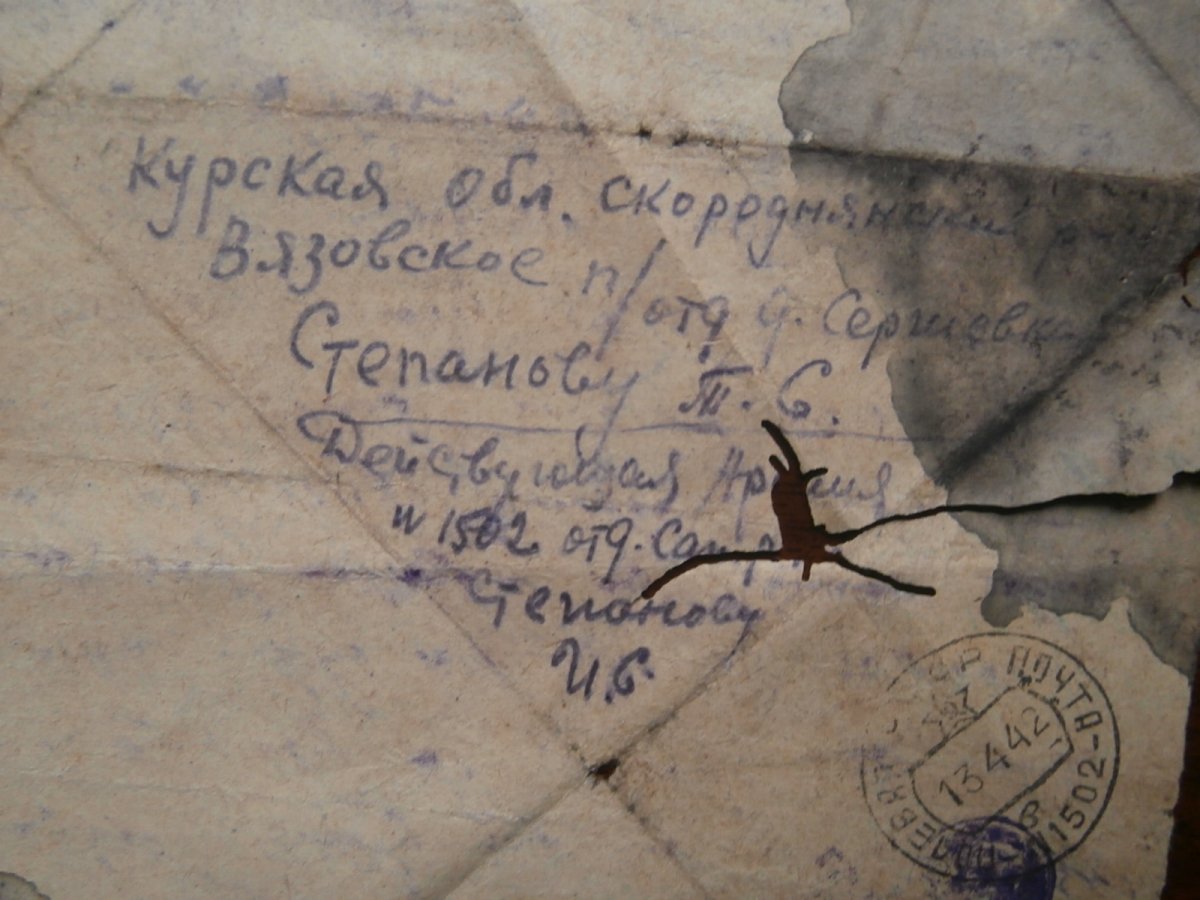 Курская обл. Скороднянский
Вязовское п/отд д. Сергиевка
Степанову Т. С.
Действующая Армия
N 1502 отд.
Степанову
И. С.
СССР ПОЧТА-
13 4 42
в
ПОЛЕВАЯ N1502-